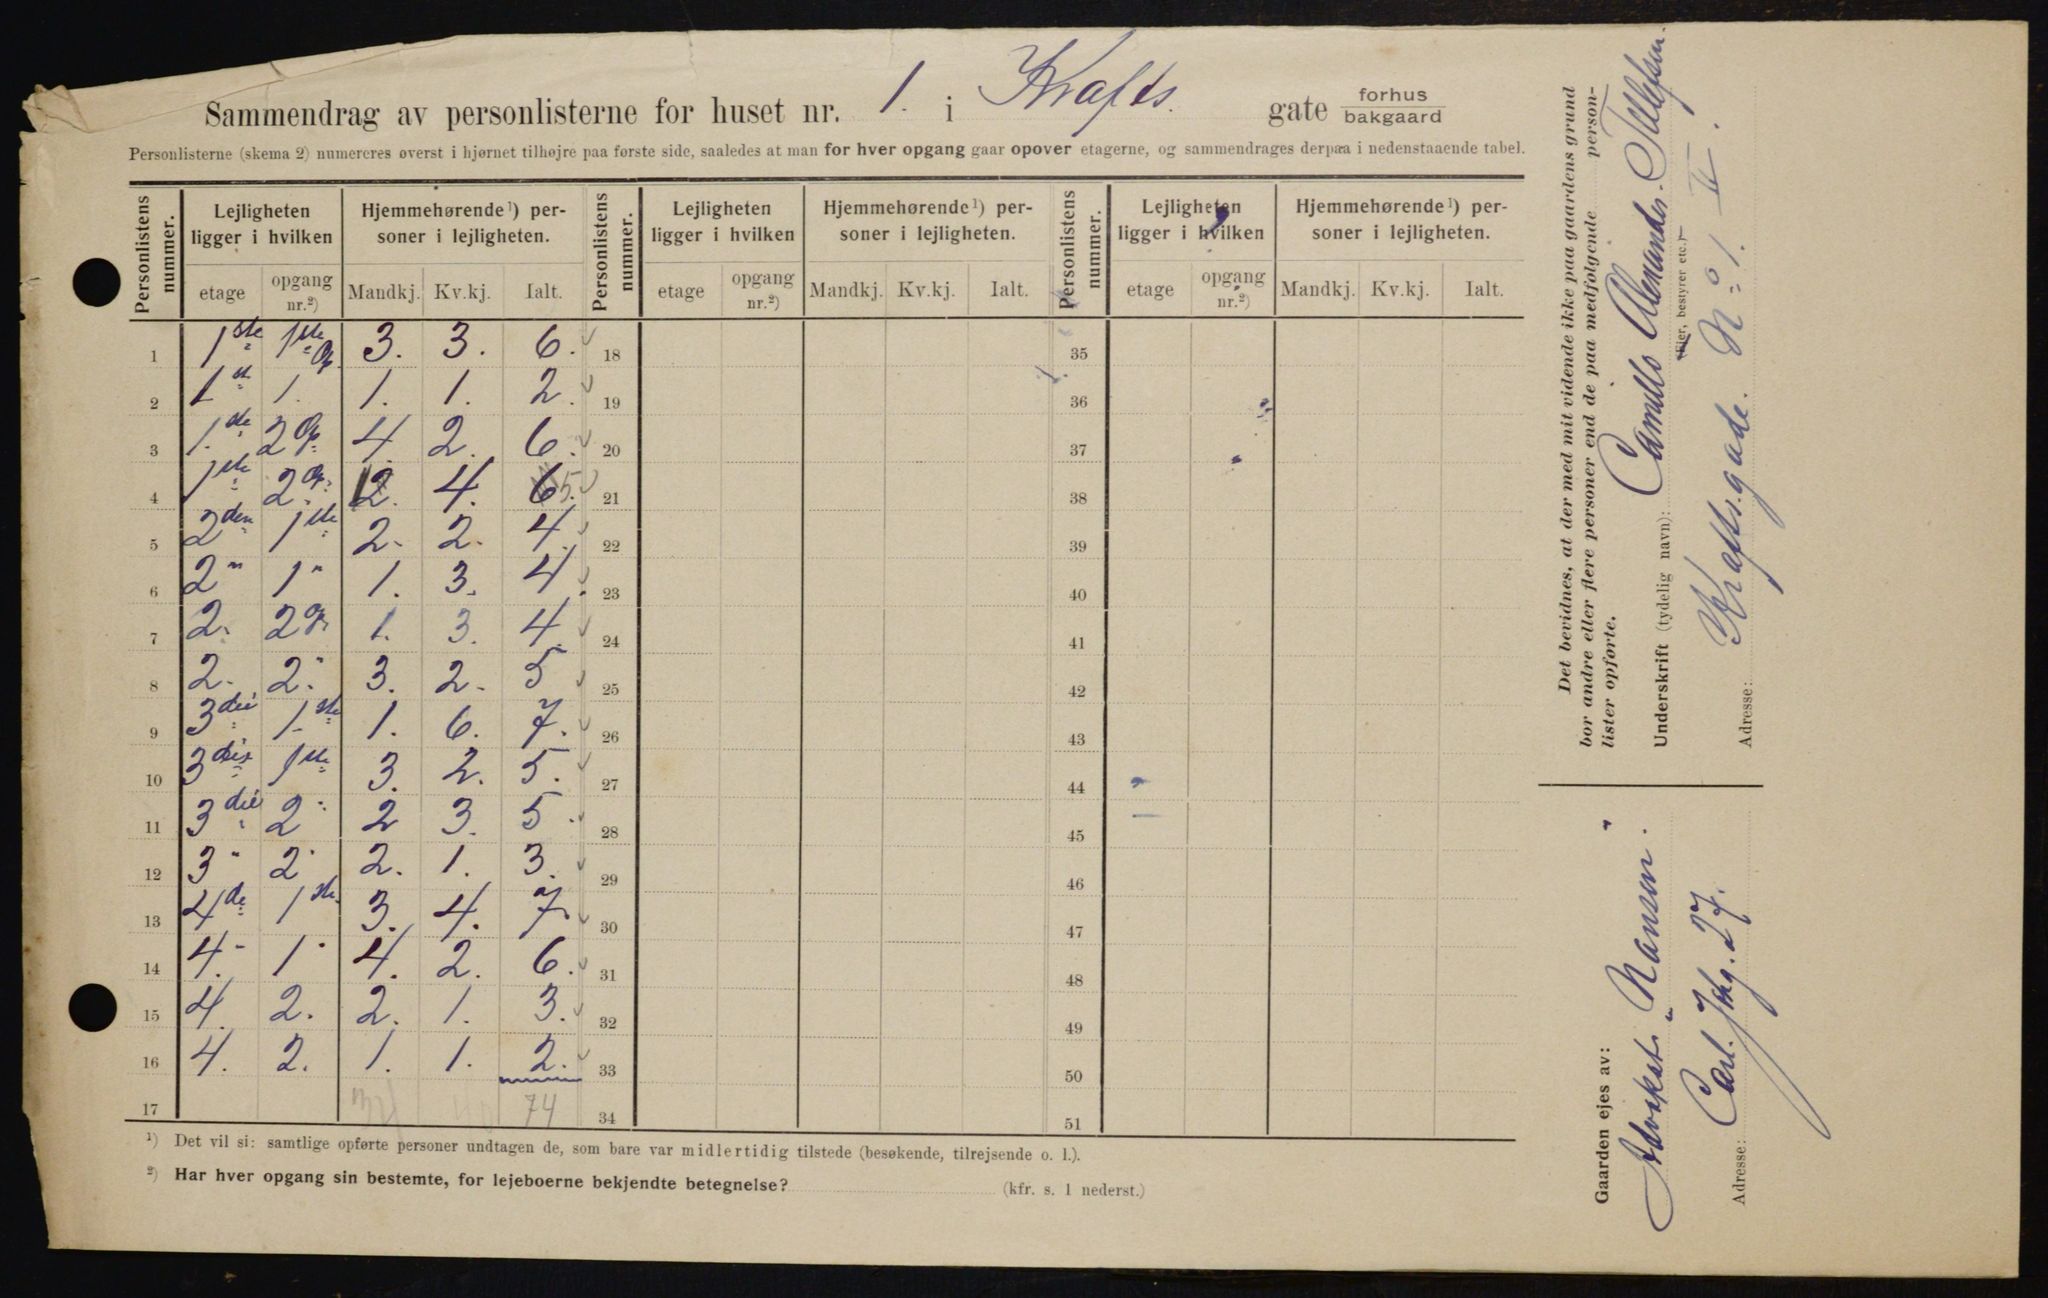 Sammendrag av personlisterne for huset nr. 1. i Krafts. gate forhus bakgaard
Personlisterne (skema 2) numereres øverst i hjørnet tilhøjre paa første side, saaledes at man for hver opgang gaar opover etagerne, og sammendrages derpaa i nedenstaaende tabel.
Personlistens nummer. Lejligheten ligger i hvilken Hjemmehørende ¹) personer i lejligheten. Personlistens nummer. Lejligheten ligger i hvilken Hjemmehørende ¹) personer i lejligheten. Personlistens nummer. Lejligheten ligger i hvilken Hjemmehørende ¹) personer i lejligheten.
etage opgang nr.²) Mandkj. Kv.kj. Ialt. etage opgang nr.²) Mandkj. Kv.kj. Ialt. etage opgang nr.²) Mandkj. Kv.kj. Ialt.
1 1ste 1ste Op. 3. 3. 6. 18 35
2 1st 1. 1. 1. 2. 19 36
3 1.ste 2 Op. 4. 2. 6. 20 37
4 1ste 2 Op. 2. 4. 6. 5 21 38
5 2den 1ste 2. 2. 4. 22 39
6 2" 1" 1. 3. 4. 23 40
7 2. 2 Op. 1. 3. 4. 24 41
8 2. 2." 3. 2. 5 25 42
9 3die 1.ste 1. 6. 7. 26 43
10 3die 1ste 3. 2. 5. 27 44
11 3die 2" 2 3. 5. 28 45
12 3" 2" 2. 1. 3. 29 46
13 4de 1ste 3. 4. 7. 30 47
14 4." 1" 4. 2. 6. 31 48
15 4. 2. 2. 1. 3. 32 49
16 4. 2. 1. 1. 2. 33 50
17 74 34 51
¹) Det vil si: samtlige opførte personer undtagen de, som bare var midlertidig tilstede (besøkende, tilrejsende o. l.).
²) Har hver opgang sin bestemte, for lejeboerne bekjendte betegnelse? (kfr. s. 1 nederst.)
Det bevidnes, at der med mit vidende ikke paa gaardens grund
bor andre eller flere personer end de paa medfølgende person-
lister opførte.
Underskrift (tydelig navn): Camillo Alexander Tellefsen.
(Ejer, bestyrer etc.)
Adresse: Krafts.gade. No 1. II.
Gaarden ejes av:
Advokat Nansen.
Adresse: Carl. Johg. 27.